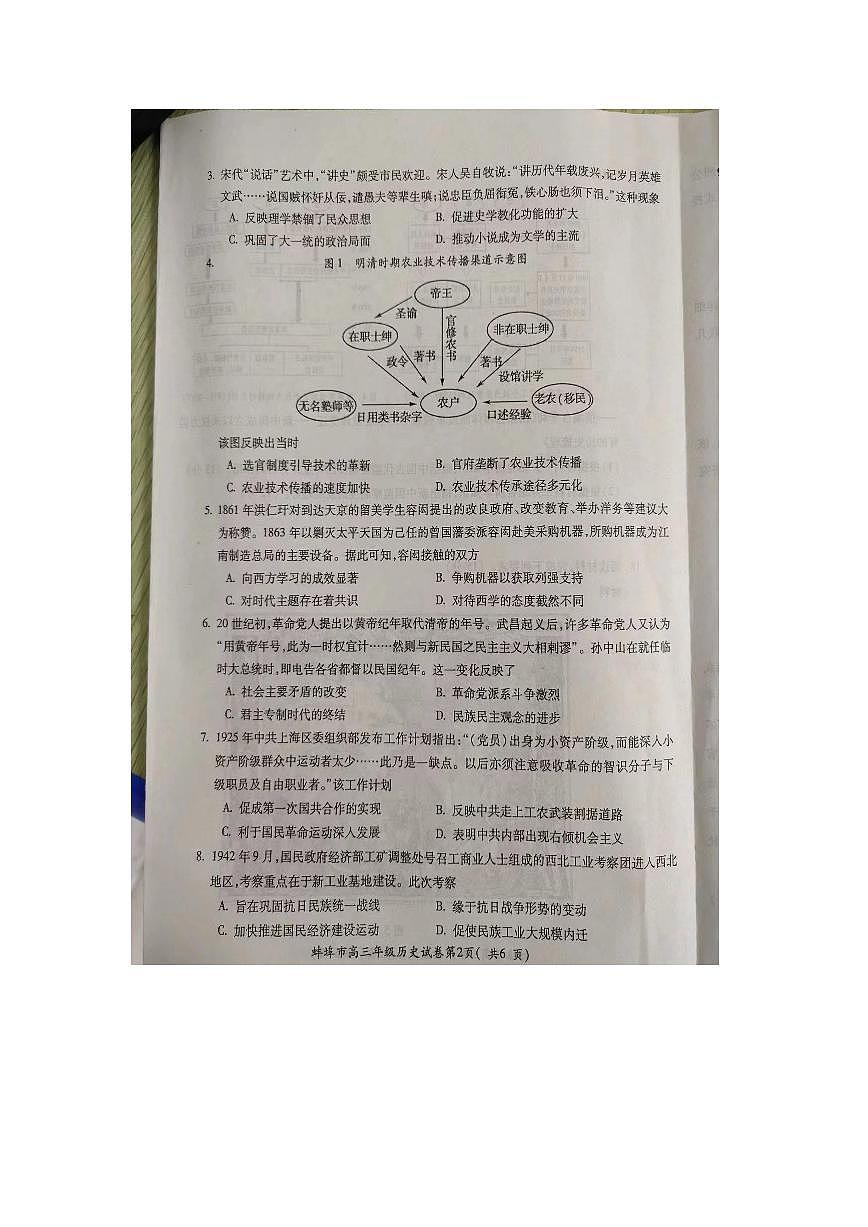 3. 宋代“说话”艺术中,“讲史”颇受市民欢迎。宋人吴自牧说:“讲历代年载废兴,记岁月英雄
文武……说国贼怀奸从佞,遣愚夫等辈生嗔;说忠臣负屈衔冤,铁心肠也须下泪。”这种现象
A. 反映理学禁锢了民众思想 B. 促进史学教化功能的扩大
C. 巩固了大一统的政治局面 D. 推动小说成为文学的主流
4. 图1 明清时期农业技术传播渠道示意图
帝王
圣谕
官修农书
在职士绅
非在职士绅
政令
著书
著书
设馆讲学
无名塾师等
日用类书杂字
农户
口述经验
老农(移民)
该图反映出当时
A. 选官制度引导技术的革新 B. 官府垄断了农业技术传播
C. 农业技术传播的速度加快 D. 农业技术传承途径多元化
5. 1861年洪仁玕对到达天京的留美学生容闳提出的改良政府、改变教育、举办洋务等建议大
为称赞。1863年以剿灭太平天国为己任的曾国藩委派容闳赴美采购机器,所购机器成为江
南制造总局的主要设备。据此可知,容闳接触的双方
A. 向西方学习的成效显著 B. 争购机器以获取列强支持
C. 对时代主题存在着共识 D. 对待西学的态度截然不同
6. 20世纪初,革命党人提出以黄帝纪年取代清帝的年号。武昌起义后,许多革命党人又认为
“用黄帝年号,此为一时权宜计……然则与新民国之民主主义大相剌谬”。孙中山在就任临
时大总统时,即电告各省都督以民国纪年。这一变化反映了
A. 社会主要矛盾的改变 B. 革命党派系斗争激烈
C. 君主专制时代的终结 D. 民族民主观念的进步
7. 1925年中共上海区委组织部发布工作计划指出:“(党员)出身为小资产阶级,而能深入小
资产阶级群众中运动者太少……此乃是一缺点。以后亦须注意吸收革命的智识分子与下
级职员及自由职业者。”该工作计划
A. 促成第一次国共合作的实现 B. 反映中共走上工农武装割据道路
C. 利于国民革命运动深入发展 D. 表明中共内部出现右倾机会主义
8. 1942年9月,国民政府经济部工矿调整处号召工商业人士组成的西北工业考察团进入西北
地区,考察重点在于新工业基地建设。此次考察
A. 旨在巩固抗日民族统一战线 B. 缘于抗日战争形势的变动
C. 加快推进国民经济建设运动 D. 促使民族工业大规模内迁
蚌埠市高三年级历史试卷第2页(共6页)